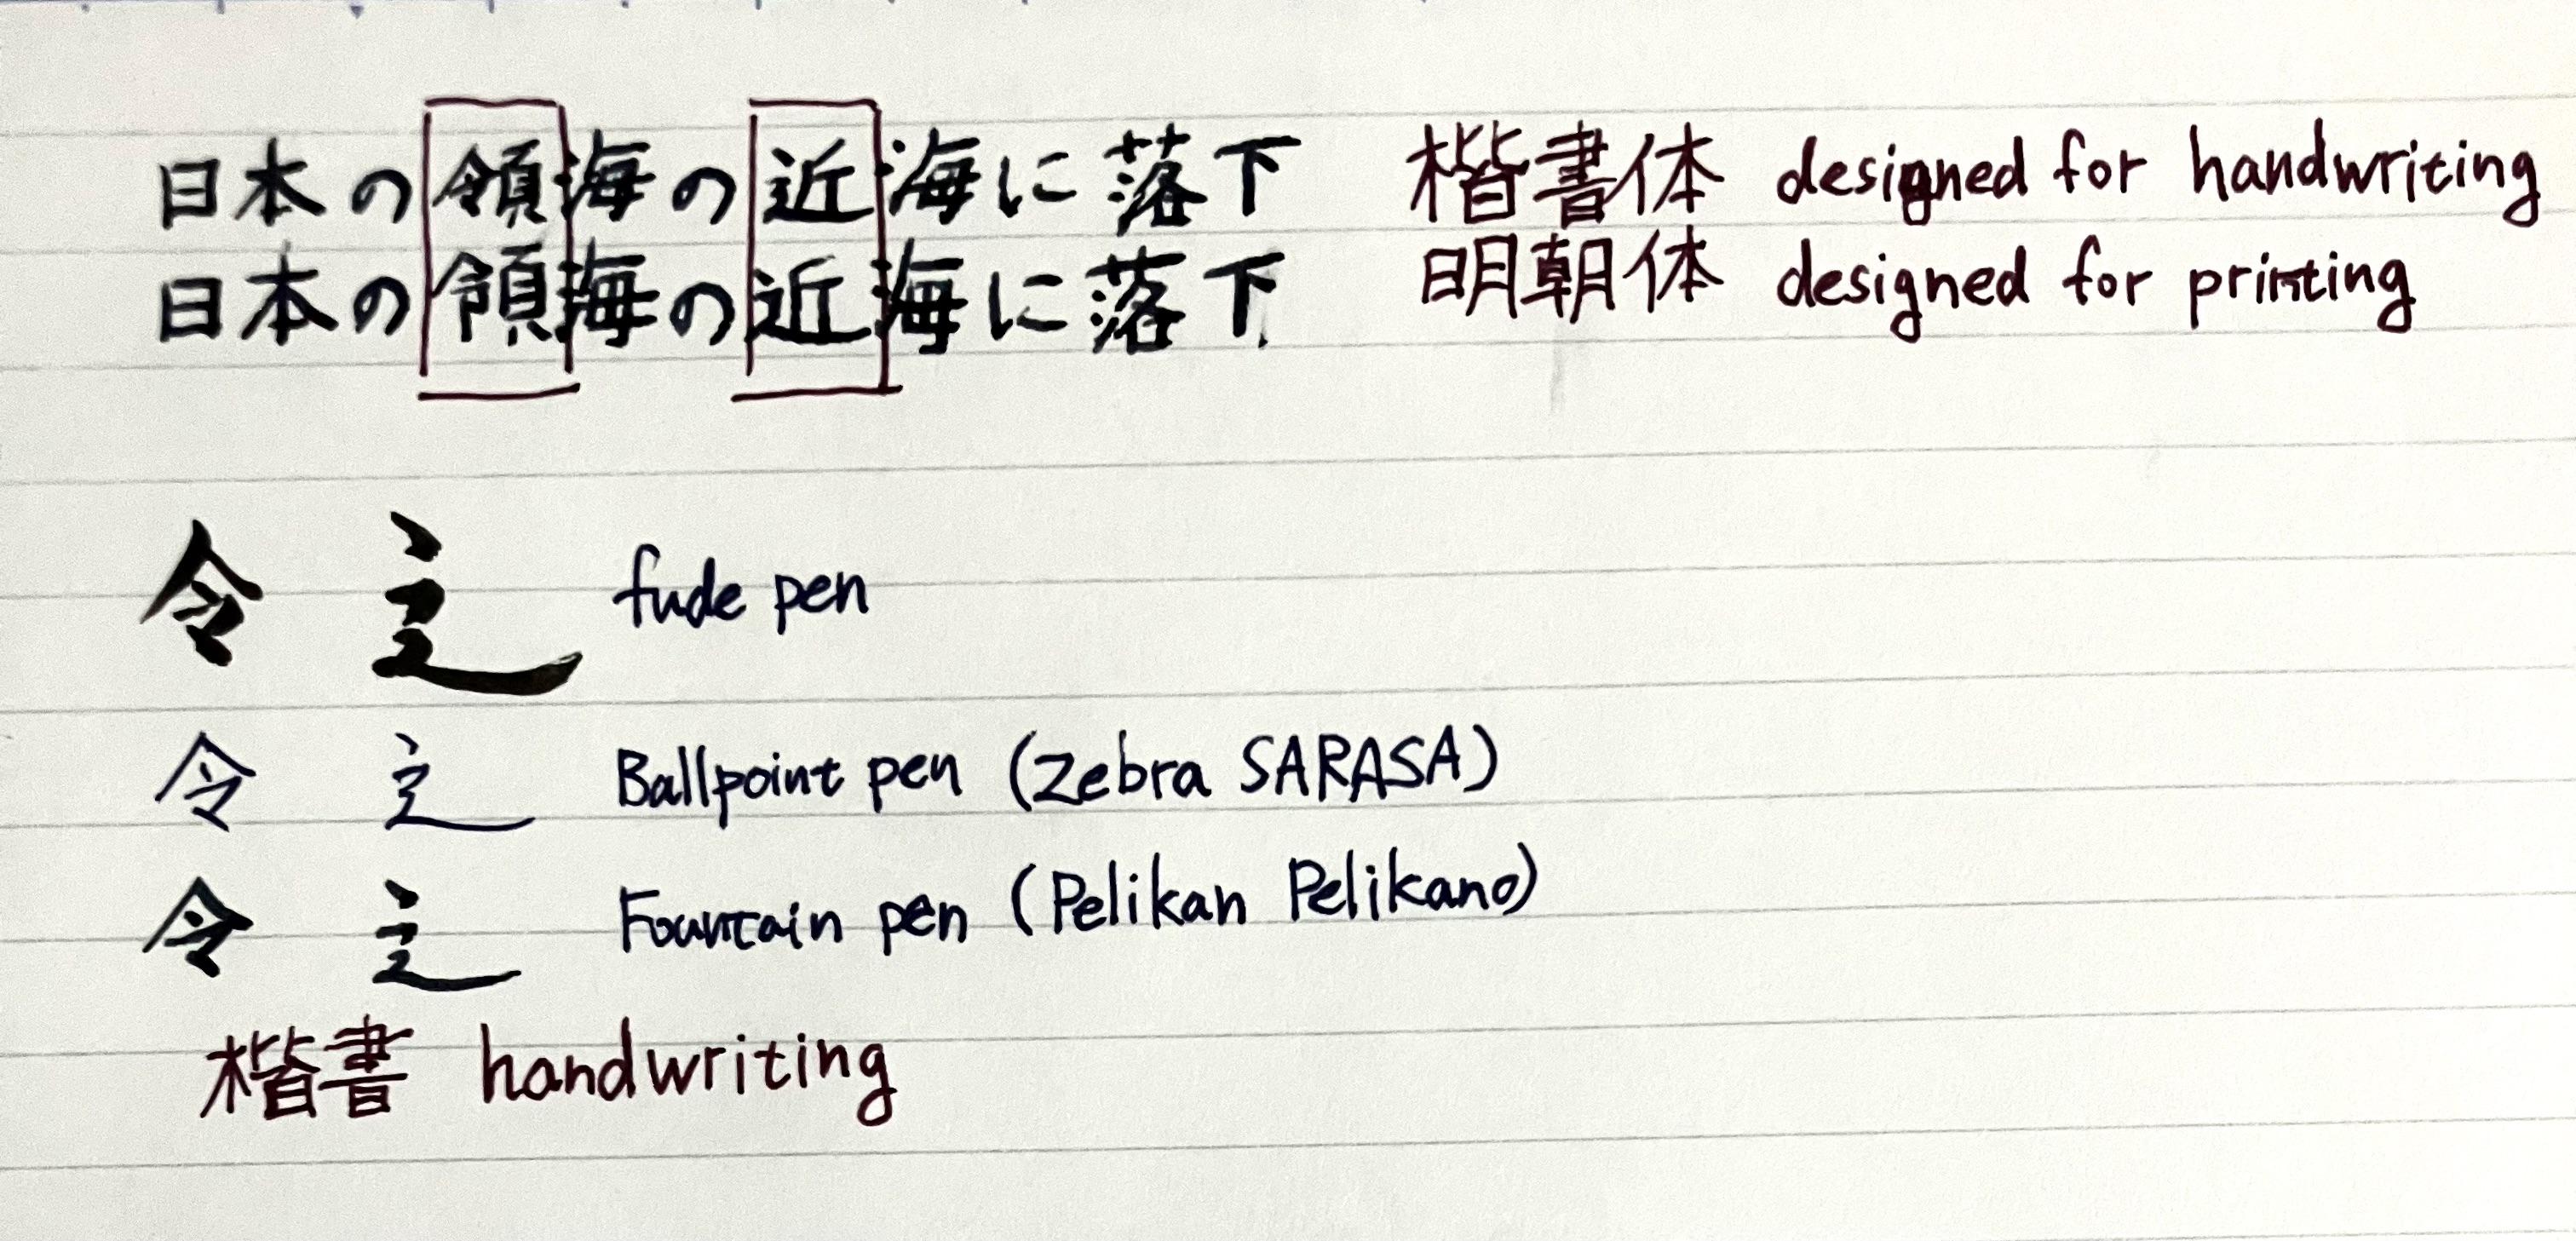 日本の領海の近海に落下 楷書体 designed for handwriting
日本の領海の近海に落下 明朝体 designed for printing
令 辶 fude pen
令 辶 Ballpoint pen (Zebra SARASA)
令 辶 Fountain pen (Pelikan Pelikano)
楷書 handwriting